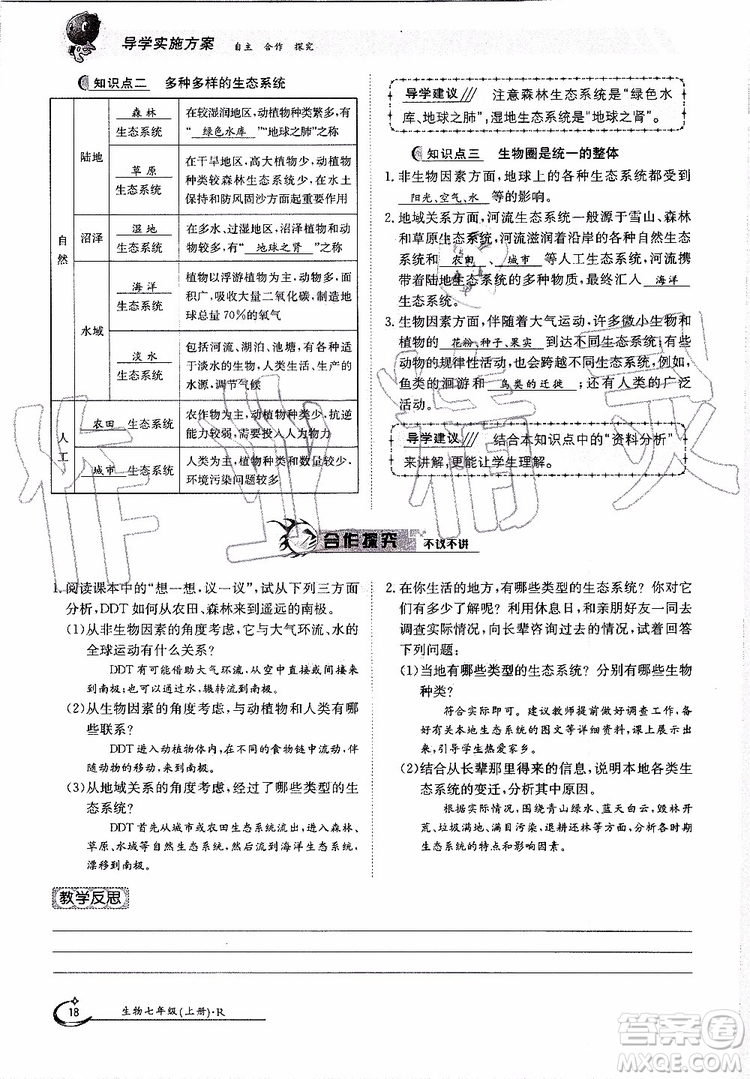 导学实施方案 自主 合作 探究
知识点二 多种多样的生态系统
自然
陆地
森林
生态系统
在较湿润地区,动植物种类繁多,有“绿色水库”“地球之肺”之称
草原
生态系统
在干旱地区,动植物种类较森林生态系统少,在水土保持和防风固沙方面有作用
沼泽
湿地
生态系统
在多水,过湿地区,沼泽植物和动物较多,有“地球之肾”之称
水域
海洋
生态系统
植物以浮游植物为主,面积广,吸收大量二氧化碳,制造地球总量70%的氧气
淡水
生态系统
包括河流、湖泊、池塘,有适于淡水的生活者、生产者的水源,调节气候
人工
农田 生态系统
农作物为主,动植物种类少,抗逆能力较弱,需要投入人力物力
城市 生态系统
人类为主,其他种类生物少,环境污染问题大
导学建议 注意森林生态系统是“绿色水
库、地球之肺”,湿地生态系统是“地球之肾”。
知识点三 生物圈是统一的整体
1. 非生物因素方面,地球上的各种生态系统都受到
阳光、空气、水 等的影响。
2. 地域关系方面,河流生态系统一般源于雪山、森林
和草原生态系统。河流滋润着沿岸的各种自然生态
系统和 农田 、 城市 等人工生态系统,河流携
带着陆地生态系统的多种物质,最终汇入 海洋 。
3. 生物因素方面,伴随着大气运动,许多微小生物和
植物的 花粉、种子、果实 到达各种环境中;有些
动物的规律性活动会跨越不同生态系统,例如,
鱼类的洄游和 鸟类的迁徙 ;还有人类的广泛
活动。
导学建议 结合本知识点中的“资料分析”
来讲解,更能让学生理解。
合作探究 不议不讲
1. 阅读课本中的“想一想,议一议”,试从下列三方面
分析,DDT如何从农田、森林来到遥远的南极。
(1)从非生物因素的角度考虑,它与大气环流、水的
全球运动有什么关系?
DDT有可能借助大气环流,从空中直接到达
南极;也可能通过水,辗转流到南极。
(2)从生物因素的角度考虑,与动植物和人类有哪
些联系?
DDT进入动植物体内,在不同的食物链中
迁移。
(3)从地域关系的角度考虑,经过了哪些类型的生
态系统?
DDT首先从城市或农田生态系统流出,进入森林、
草原、水域等自然生态系统,而后流到海洋生态系统,
漂移到南极。
2. 在你生活的地方,有哪些类型的生态系统?你对这
些生态系统有哪些了解?利用休息日,和同学一同去
调查实际情况,向长辈咨询当时的情况,试着回答
下列问题:
(1)当地有哪些类型的生态系统?分别有哪些生物
种类?
符合实际即可。建议教师提前做好调查工作,收集
关于本地生态系统的图文等详细资料,课上展示出
来,引导学生热爱家乡。
(2)结合从长辈那里得来的信息,说明本地各类生
态系统的变迁,分析其原因。
根据实际情况,围绕青山绿水、蓝天白云,或林木开
荒、垃圾满地、满目污染,退耕还林等,分析各时期
生态系统的特点和影响因素。
教学反思
18 生物七年级(上册)·R
作业精灵
答案圈
MXQE.COM